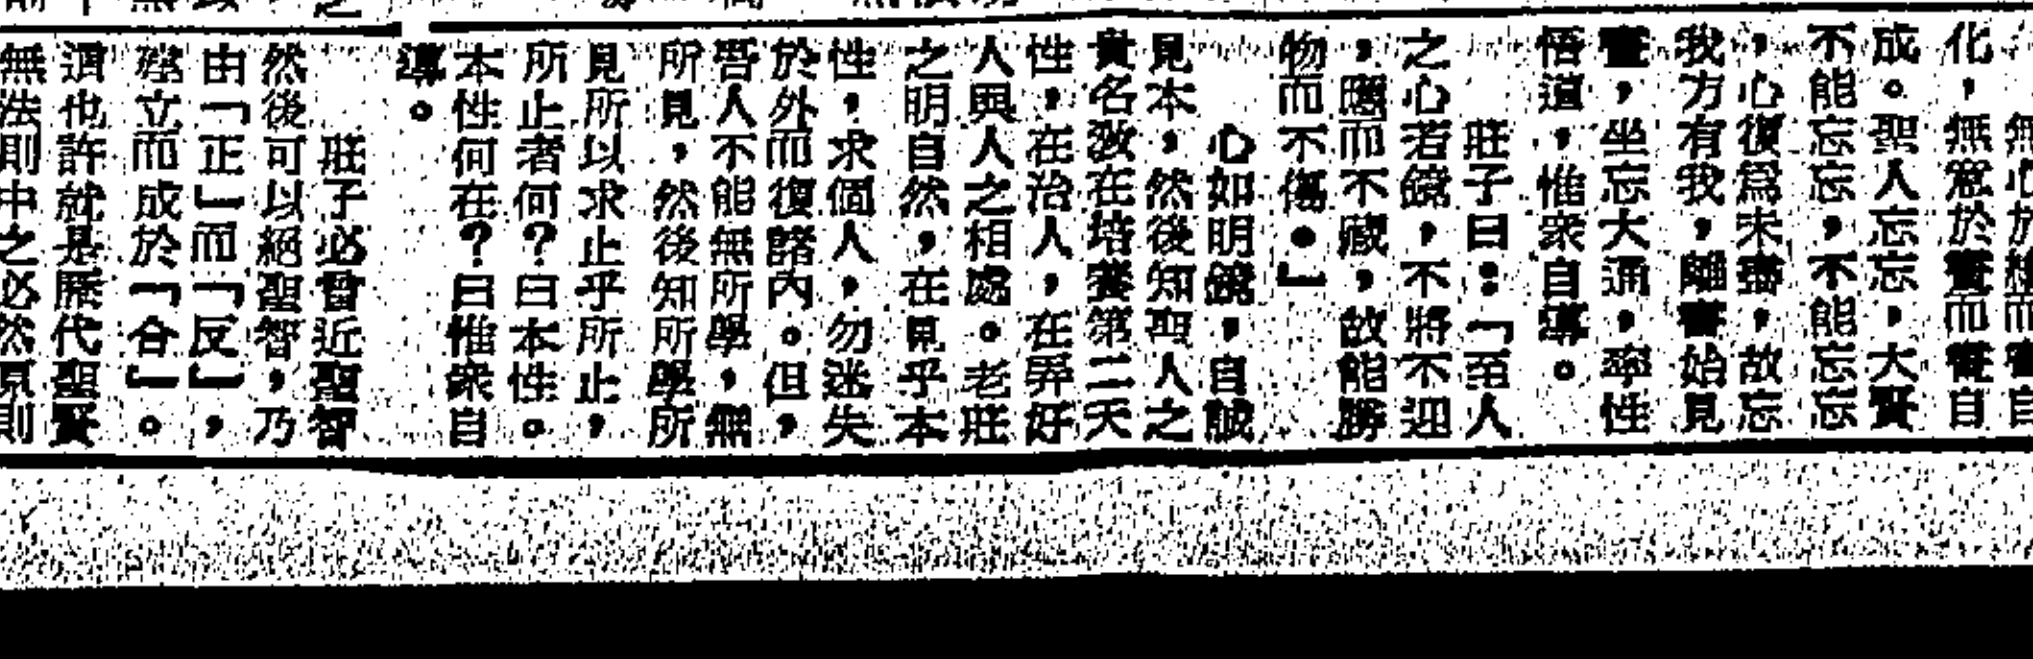 無心於繪而畫自
化，無意於畫而畫自
成。聖人忘忘，大賢
不能忘忘，不能忘忘
，心復為未畫，故忘
我方有我，離畫始見
畫，坐忘大通，率性
悟道，惟衆自導。
莊子曰：「至人
之心若鏡，不將不迎
，應而不藏，故能勝
物而不傷。」
心如明鏡，自誠
見本，然後知聖人之
貴名教在培養第二天
性，在治人，在弄好
人與人之相處。老莊
之明自然，在見乎本
性，求個人，勿迷失
於外而復諸內。但，
吾人不能無所學，無
所見，然後知所學所
見所以求止乎所止，
所止者何？曰本性。
本性何在？曰惟衆自
導。
莊子必曾近聖智
然後可以絕聖智，乃
由「正」而「反」，
蹤立而成於「合」。
謂也許就是歷代聖賢
無法則中之必然原則